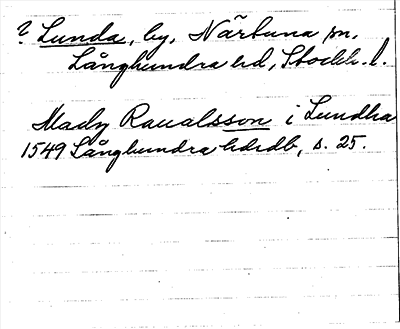 ? Lunda, by, Närtuna sn.
Långhundra hd, Stockh. l.
Madz Raualsson i Lundha
1549 Långhundra hdrdb, s. 25.